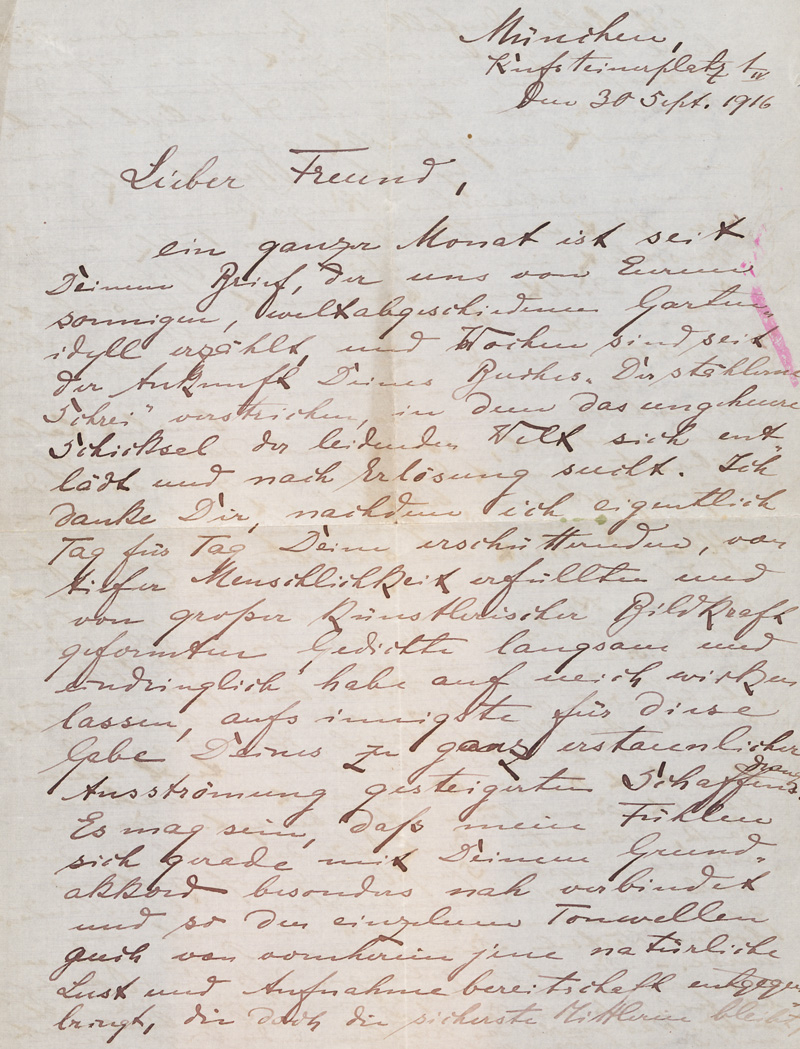 München,
Kufsteinerplatz 1/IV
den 30 Sept. 1916
Lieber Freund,
ein ganzer Monat ist seit
Deinem Brief, der uns von Eurem
sonnigen, weltabgeschiedenen Garten„
idyll erzählt, und Wochen sind seit
der Ankunft Deines Buches „Der stählerne
Schrei" verstrichen, in dem das ungeheure
Schicksal der leidenden Welt sich ent„
lädt und nach Erlösung sucht. Ich
danke Dir, nachdem ich eigentlich
Tag für Tag Deine erschütternden, von
tiefer Menschlichkeit erfüllten und
von großer künstlerischer Bildkraft
geformten Gedichte langsam und
eindringlich habe auf mich wirken
lassen, aufs innigste für diese
Gabe Deines zu ganz erstaunlicher
Ausströmung gesteigerten Schaffens
Es mag sein, daß mein Fühlen
sich gerade mit Deinem Grund„
akkord besonders nah verbindet
und so den einzelnen Tonwellen
auch von vornherein jene natürliche
Lust und Aufnahmebereitschaft entgegen
bringt, die doch die sicherste Mittlerin bleibt